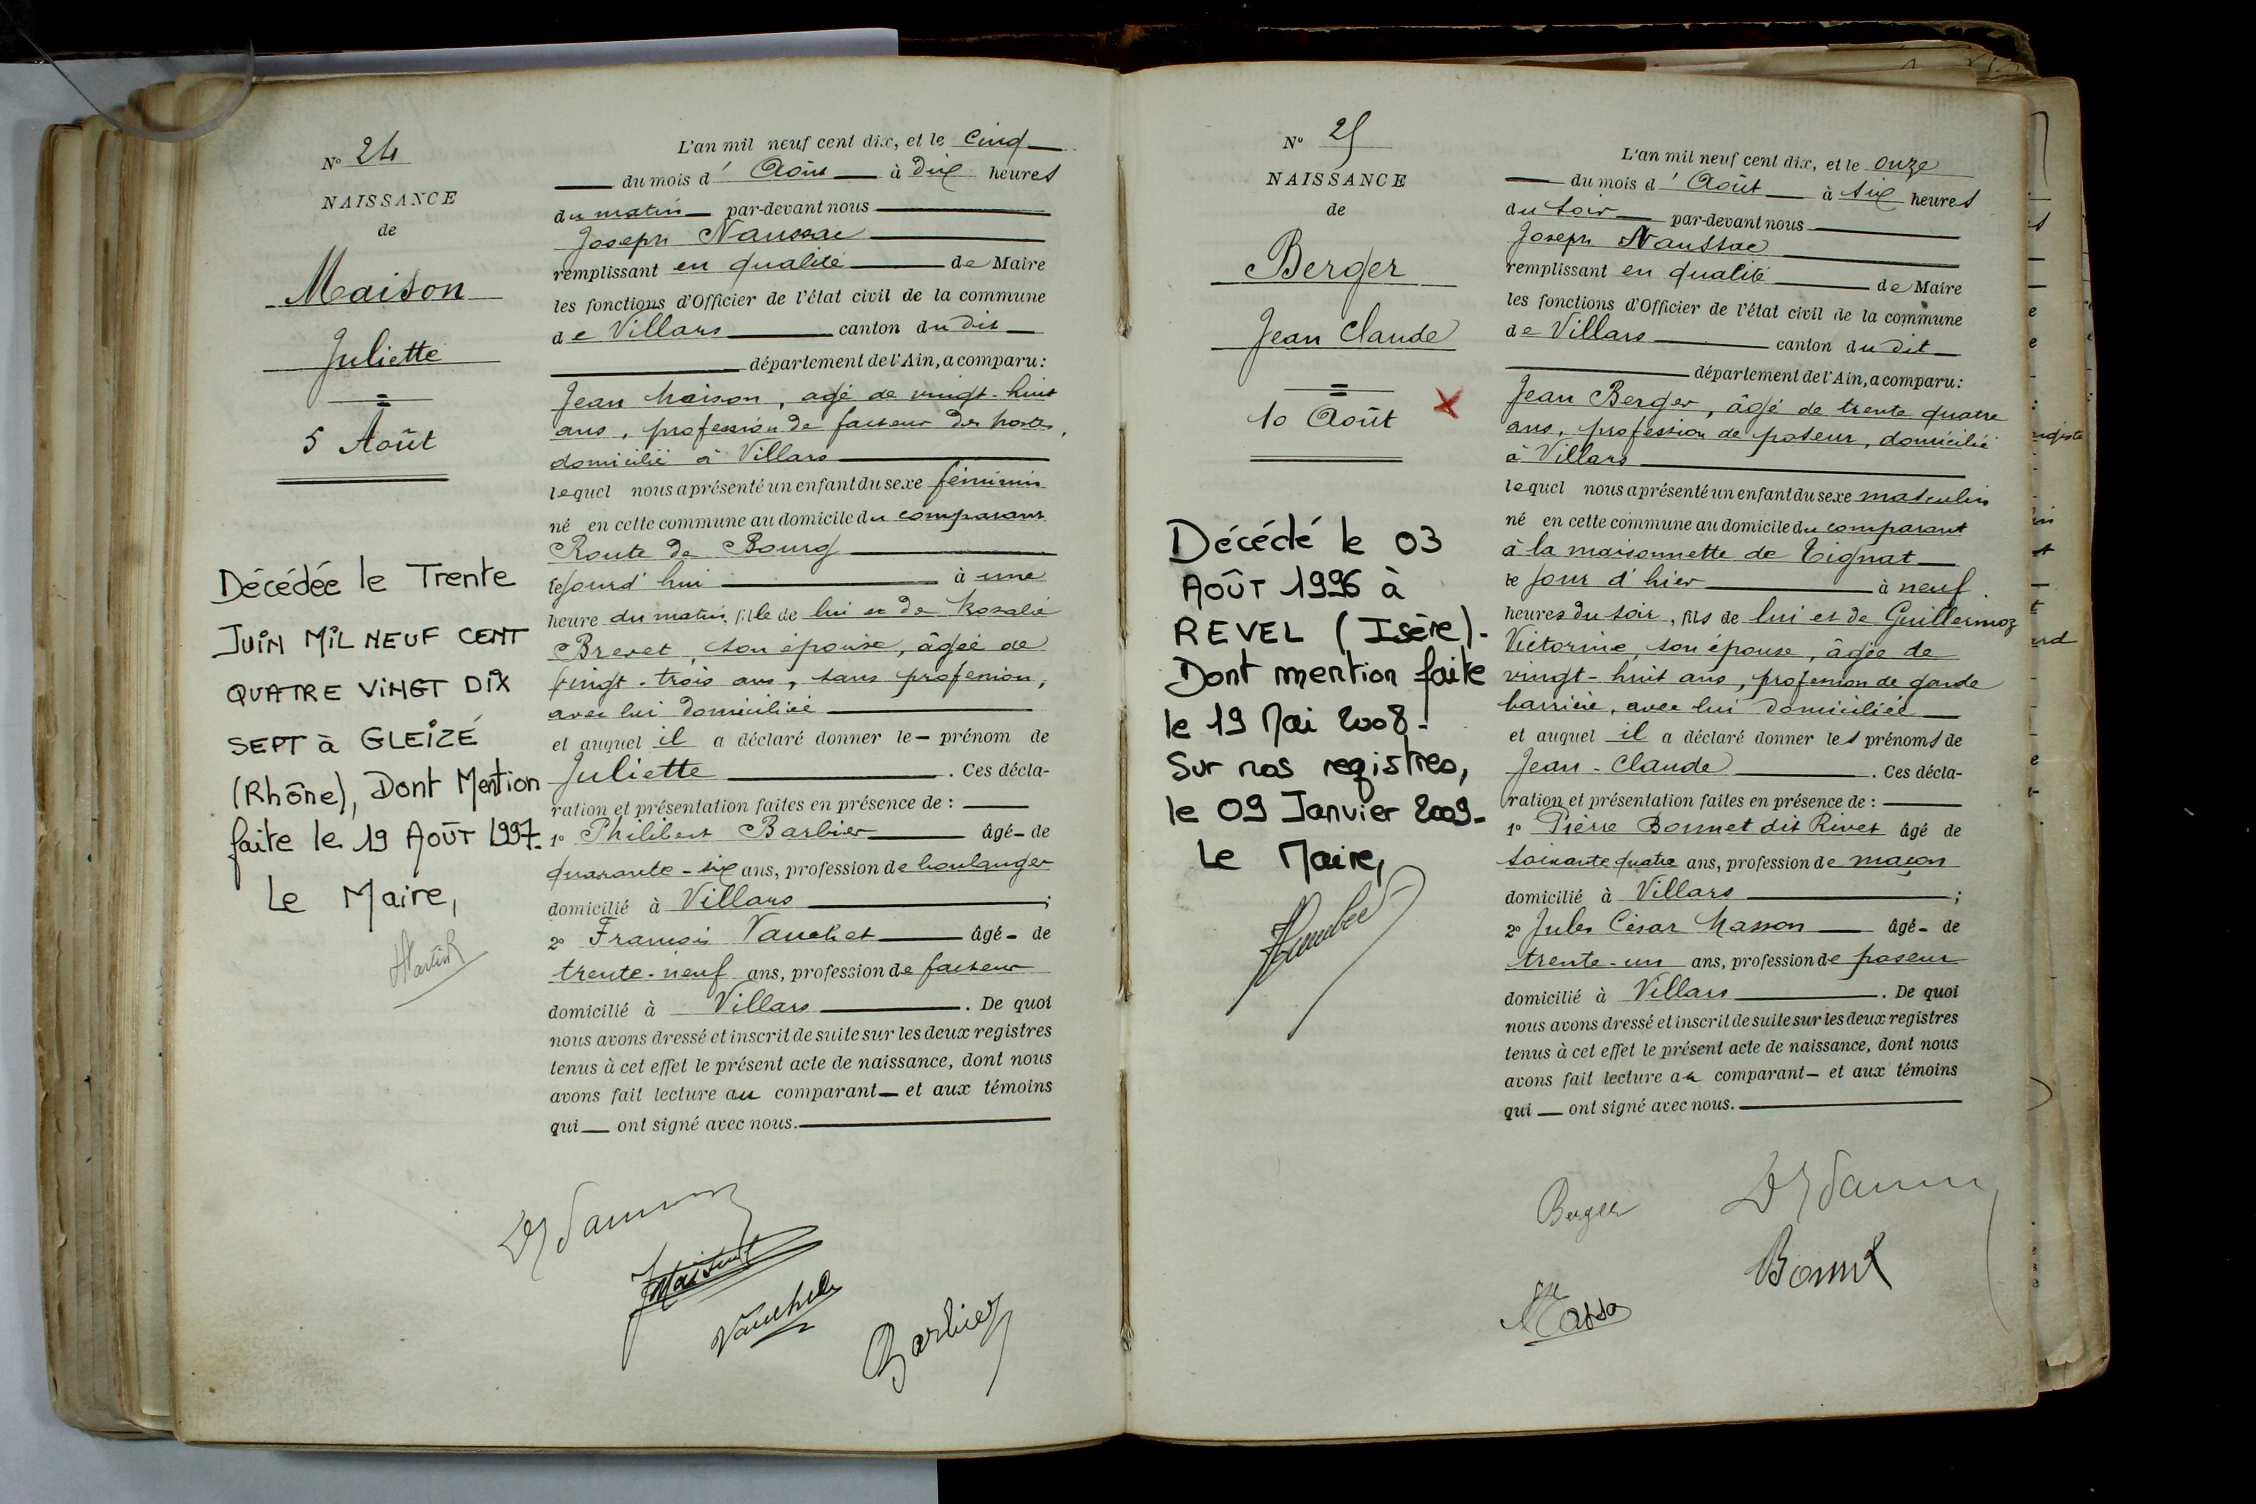 N° 24
NAISSANCE
de
Maison
Juliette
5 Août
Décédée le Trente
JUIN MIL NEUF CENT
QUATRE VINGT DIX
SEPT à GLEIZÉ
(Rhône), Dont Mention
faite le 19 AOÛT 1997.
Le Maire,
L'an mil neuf cent dix, et le cinq
du mois d'Août à dix heures
du matin par-devant nous
Joseph Naussac
remplissant en qualité de Maire
les fonctions d'Officier de l'état civil de la commune
de Villars canton du dit
département de l'Ain, a comparu:
Jean Maison, agé de vingt-huit
ans, profession de facteur des postes,
domicilié à Villars
lequel nous a présenté un enfant du sexe féminin
né en cette commune au domicile du comparant
Route de Bourg
cejourd'hui à une
heure du matin, fille de lui et de Rosalie
Brevet, son épouse, âgée de
vingt-trois ans, sans profession,
avec lui domiciliée
et auquel il a déclaré donner le prénom de
Juliette. Ces décla-
ration et présentation faites en présence de :
1° Philibert Barbier âgé de
quarante-six ans, profession de boulanger
domicilié à Villars ;
2° Francois Vauchet âgé de
trente-neuf ans, profession de facteur
domicilié à Villars. De quoi
nous avons dressé et inscrit de suite sur les deux registres
tenus à cet effet le présent acte de naissance, dont nous
avons fait lecture au comparant et aux témoins
qui ont signé avec nous.
JMaison
Vauchet
Barbier
N° 25
NAISSANCE
de
Berger
Jean Claude
10 Août
Décédé le 03
AOÛT 1996 à
REVEL (Isère).
Dont mention faite
le 19 Mai 2008.
Sur nos registres,
le 09 Janvier 2009.
Le Maire,
L'an mil neuf cent dix, et le onze
du mois d'Août à six heures
du soir par-devant nous
Joseph Naussac
remplissant en qualité de Maire
les fonctions d'Officier de l'état civil de la commune
de Villars canton du dit
département de l'Ain, a comparu:
Jean Berger, âgé de trente quatre
ans, profession de poseur, domicilié
à Villars
lequel nous a présenté un enfant du sexe masculin
né en cette commune au domicile du comparant
à la maisonnette de Tignat
le jour d'hier à neuf
heures du soir, fils de lui et de Guillermoz
Victorine, son épouse, âgée de
vingt-huit ans, profession de garde
barrière, avec lui domiciliée
et auquel il a déclaré donner les prénoms de
Jean-Claude. Ces décla-
ration et présentation faites en présence de :
1° Pièrre Bonnet dit Rivet âgé de
soixante quatre ans, profession de maçon
domicilié à Villars ;
2° Jules César Masson âgé de
trente-un ans, profession de poseur
domicilié à Villars. De quoi
nous avons dressé et inscrit de suite sur les deux registres
tenus à cet effet le présent acte de naissance, dont nous
avons fait lecture au comparant et aux témoins
qui ont signé avec nous.
Berger
Bonnet